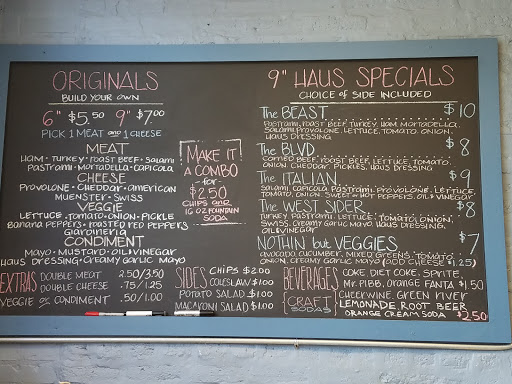 ORIGINALS
BUILD YOUR OWN
6" $5.50 9" $7.00
PICK 1 MEAT and 1 CHEESE
MEAT
HAM · TURKEY · ROAST BEEF · SALAMI
PASTRAMI · MORTADELLA · CAPICOLA
CHEESE
PROVOLONE · CHEDDAR · AMERICAN
MUENSTER · SWISS
VEGGIE
LETTUCE · TOMATO · ONION · PICKLE
BANANA PEPPERS · ROASTED RED PEPPERS
GIARDINERIA
CONDIMENT
MAYO · MUSTARD · OIL & VINEGAR
HAUS DRESSING · CREAMY GARLIC MAYO
MAKE IT
A COMBO
for
$2.50
CHIPS AND
16 OZ FOUNTAIN
SODA
EXTRAS
DOUBLE MEAT 2.50/3.50
DOUBLE CHEESE .75/1.25
VEGGIE or CONDIMENT .50/1.00
SIDES
CHIPS $2.00
COLESLAW $1.00
POTATO SALAD $1.00
MACARONI SALAD $1.00
9" HAUS SPECIALS
CHOICE of SIDE INCLUDED
The BEAST $10
PASTRAMI, ROAST BEEF, TURKEY, HAM, MORTADELLA,
SALAMI, PROVOLONE, LETTUCE, TOMATO, ONION,
HAUS DRESSING
The BLVD $8
CORNED BEEF, ROAST BEEF, LETTUCE, TOMATO,
ONION, CHEDDAR, PICKLES, HAUS DRESSING
The ITALIAN $9
SALAMI, CAPICOLA, PASTRAMI, PROVOLONE, LETTUCE,
TOMATO, ONION, SWEET or HOT PEPPERS, OIL & VINEGAR
The WEST SIDER $8
TURKEY, PASTRAMI, LETTUCE, TOMATO, ONION,
SWISS, CREAMY GARLIC MAYO, HAUS DRESSING,
OIL & VINEGAR
NOTHIN but VEGGIES $7
AVOCADO, CUCUMBER, MIXED GREENS, TOMATO,
ONION, CREAMY GARLIC MAYO (ADD CHEESE $1.25)
BEVERAGES
COKE, DIET COKE, SPRITE,
MR. PIBB, ORANGE FANTA $1.50
CRAFT
SODAS
CHEERWINE, GREEN RIVER
LEMONADE, ROOT BEER
ORANGE CREAM SODA $2.50